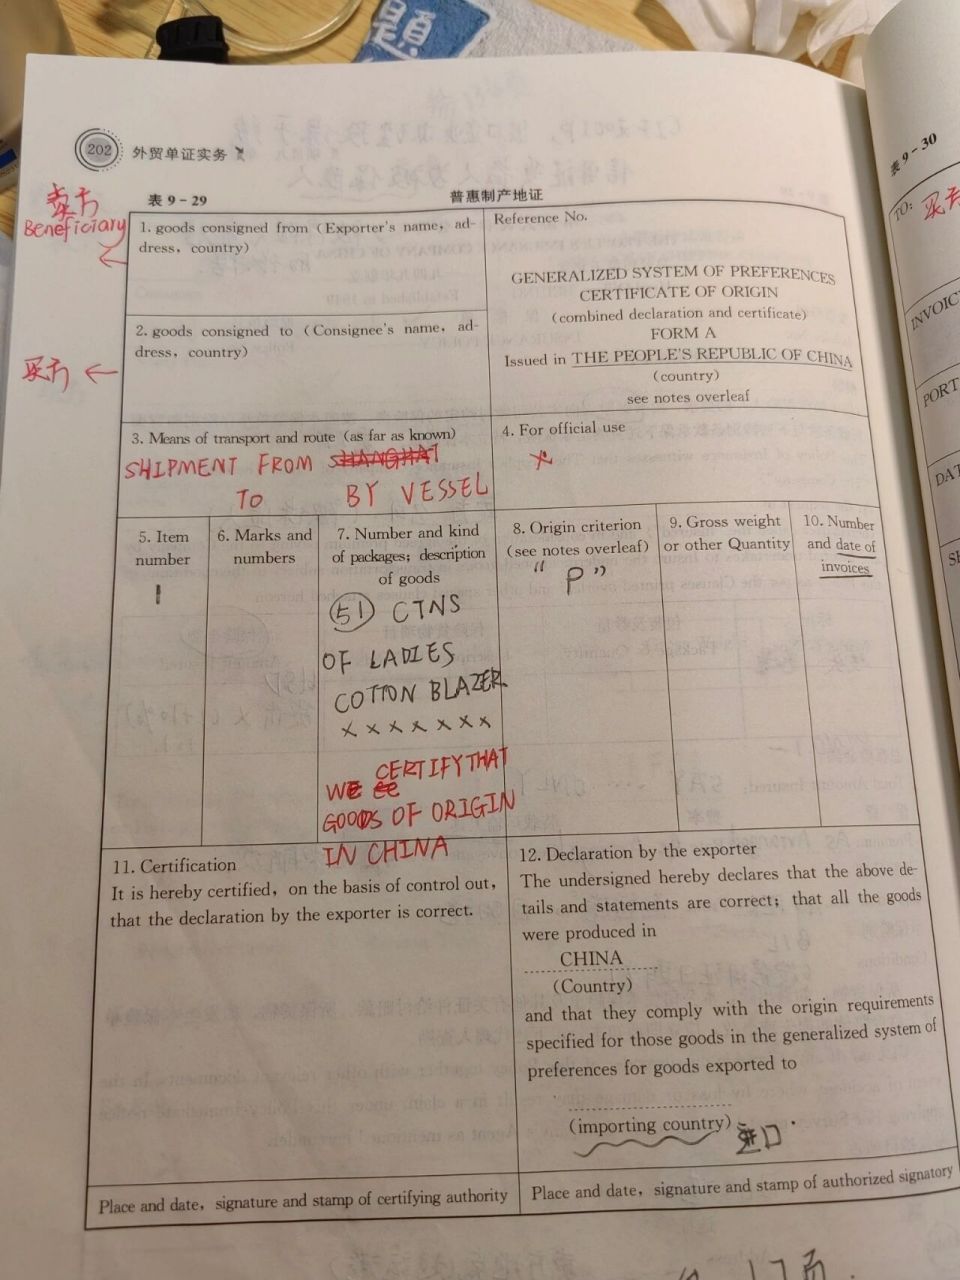 202 外贸单证实务
表 9-29 普惠制产地证
卖方
Beneficiary
1. goods consigned from (Exporter's name, ad-
dress, country)
Reference No.
GENERALIZED SYSTEM OF PREFERENCES
CERTIFICATE OF ORIGIN
(combined declaration and certificate)
FORM A
Issued in THE PEOPLE'S REPUBLIC OF CHINA
(country)
see notes overleaf
买方
2. goods consigned to (Consignee's name, ad-
dress, country)
3. Means of transport and route (as far as known)
SHIPMENT FROM SHANGHAI
TO BY VESSEL
4. For official use
×
5. Item
number
1
6. Marks and
numbers
7. Number and kind
of packages; description
of goods
51 CTNS
OF LADIES
COTTON BLAZER
×××××××
WE CERTIFY THAT
GOODS OF ORIGIN
IN CHINA
8. Origin criterion
(see notes overleaf)
"P"
9. Gross weight
or other Quantity
10. Number
and date of
invoices
11. Certification
It is hereby certified, on the basis of control out,
that the declaration by the exporter is correct.
12. Declaration by the exporter
The undersigned hereby declares that the above de-
tails and statements are correct; that all the goods
were produced in
CHINA
(Country)
and that they comply with the origin requirements
specified for those goods in the generalized system of
preferences for goods exported to
(importing country) 进口
Place and date, signature and stamp of certifying authority
Place and date, signature and stamp of authorized signatory
表 9-30
TO: 买方
INVOIC
PORT
DAT